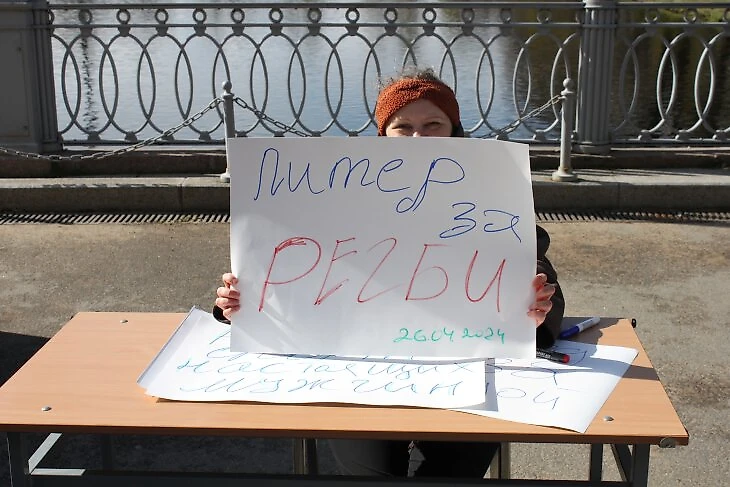 Питер
за
РЕГБИ
26 04 2024
настоящих
мужчин